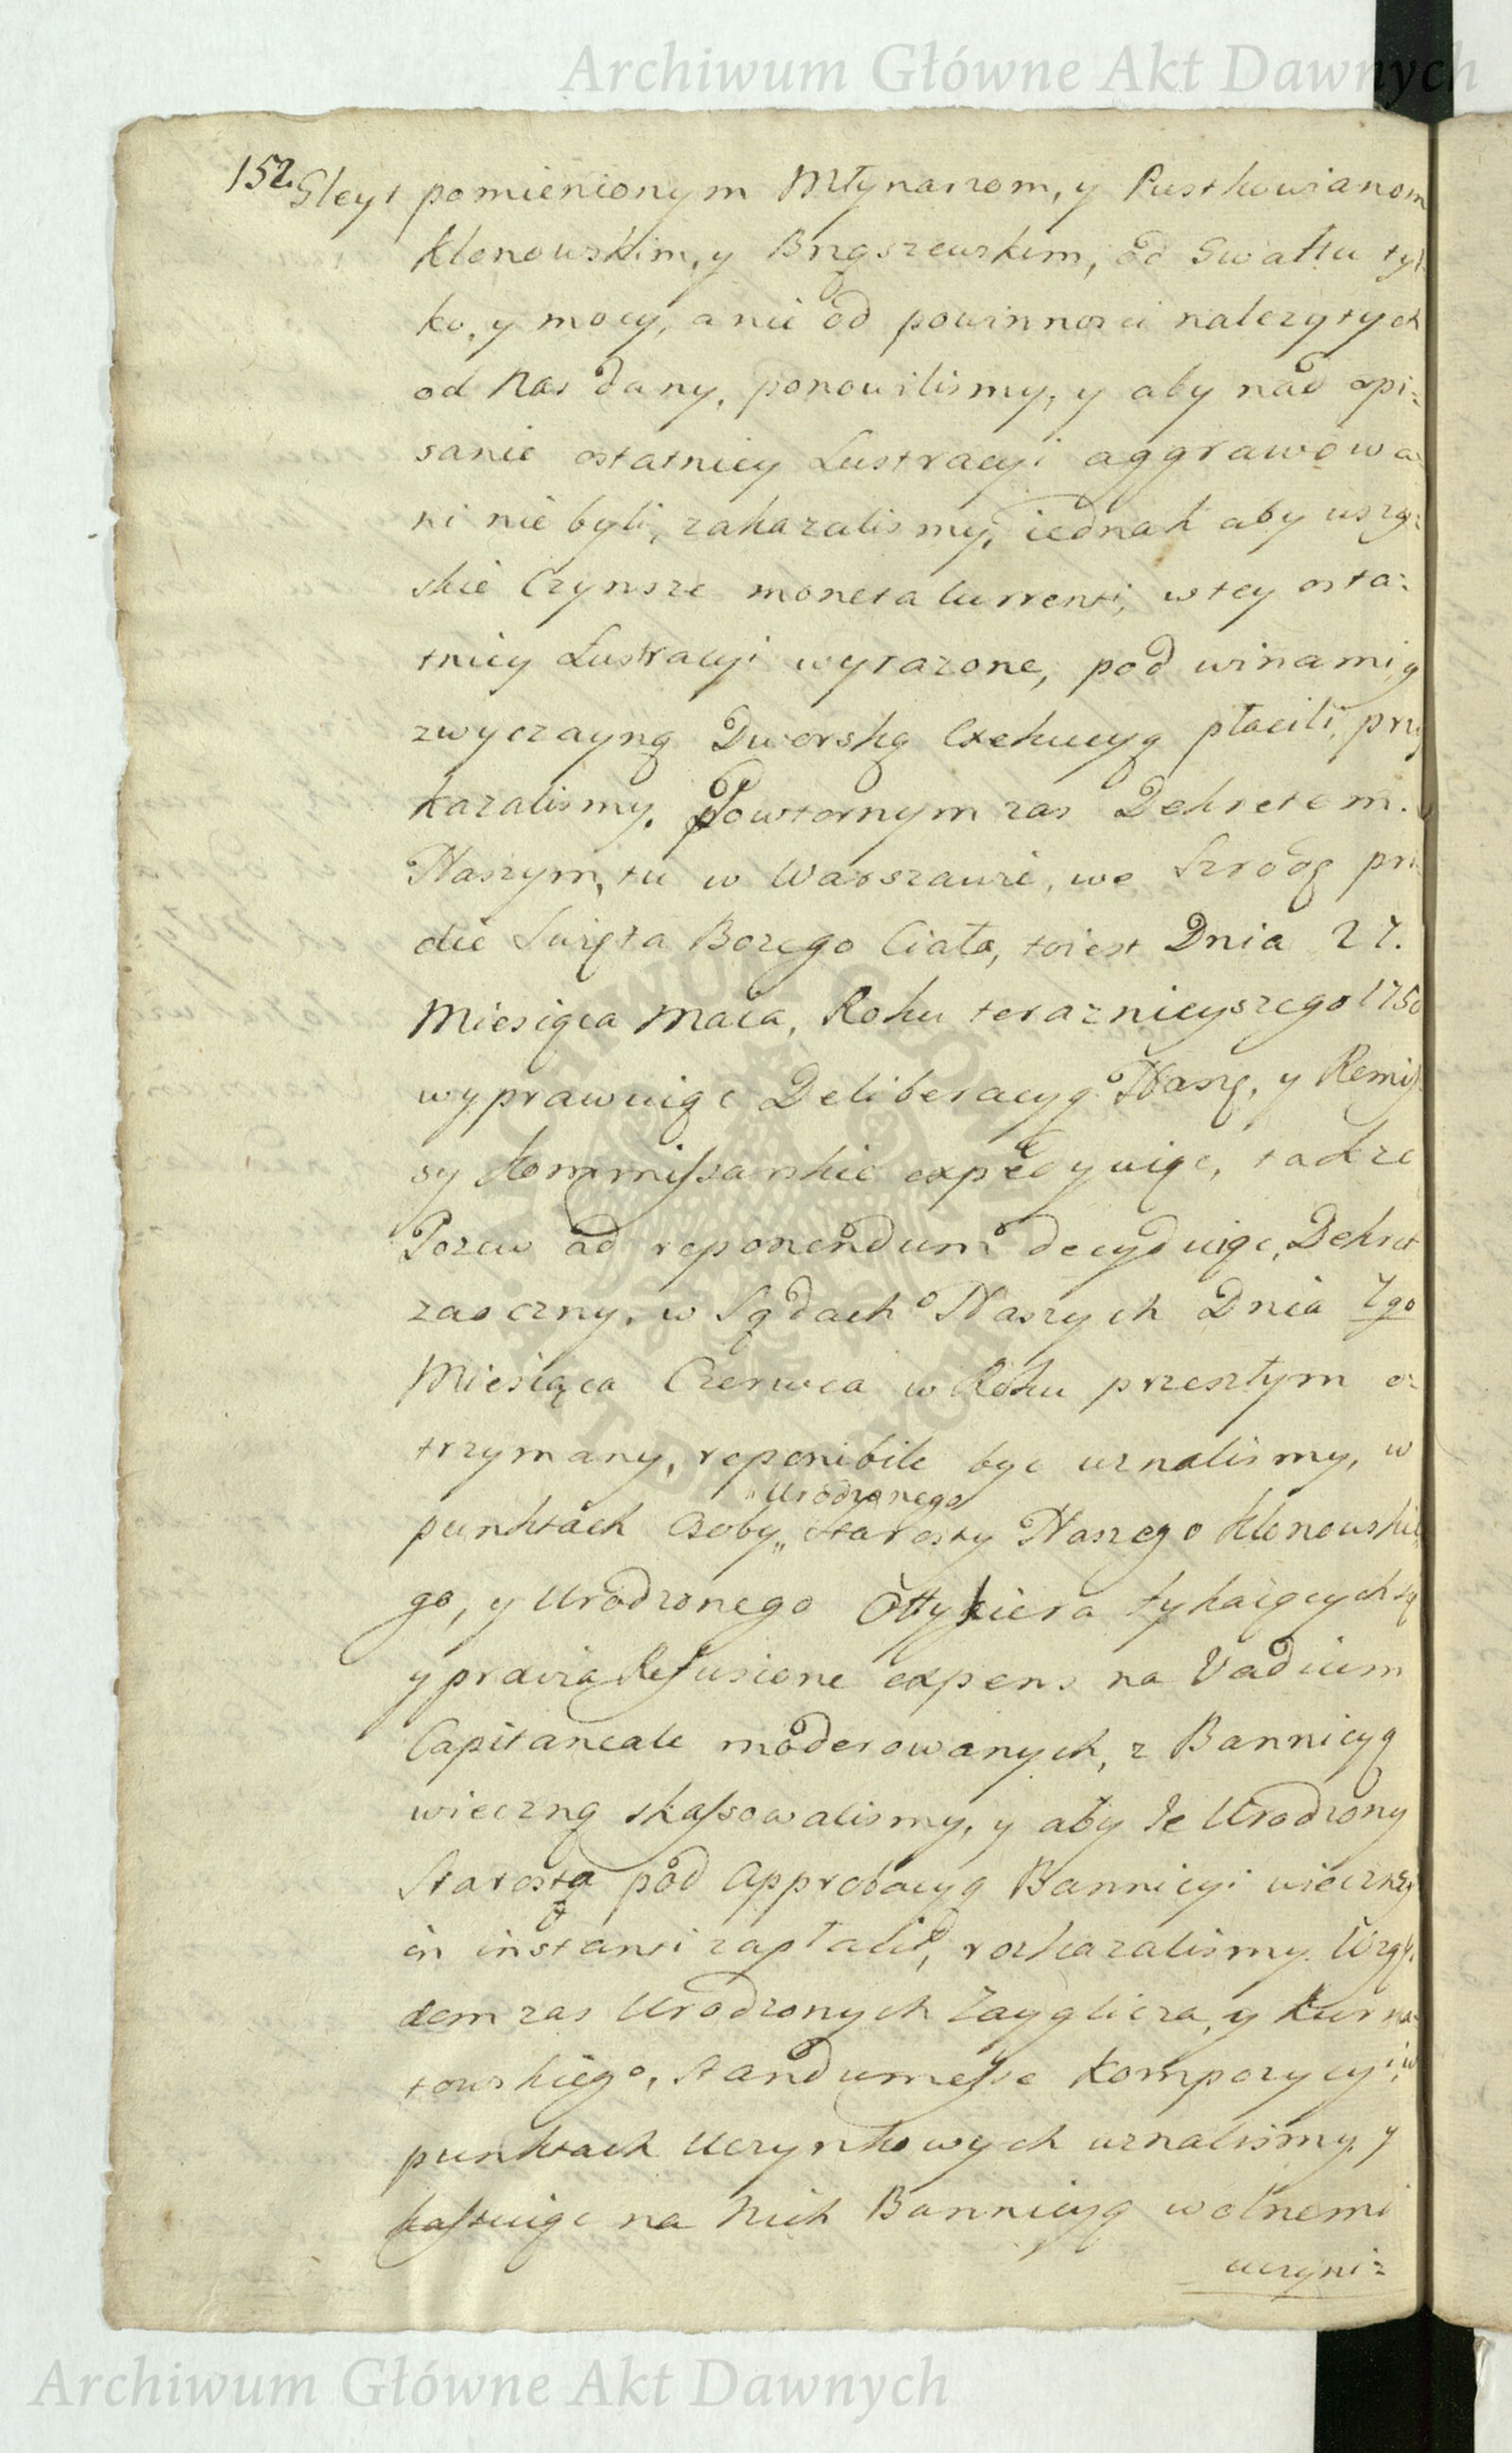 Archiwum Główne Akt Dawnych
152. Gleyt pomienionym Młynarzom, y Pustkowianom
Klonowskim, y Brąszewskim, od Gwałtu tyl
ko, y mocy, a nie od powinnosci nalezytych
od Nas dany, ponowilismy, y aby nad opi=
sanie ostatniey Lustracyi aggrawowa=
ni nie byli, zakazalismy, iednak aby wszy=
skie Czynsze moneta currenti, w tey osta=
tniey Lustracyi wyrazone, pod winami y
zwyczayną Dworską Exekucyą płacili, przy
kazalismy. Powtornym zas Dekretem
Naszym, tu w Warszawie, we Szrodę pri
die Swięta Bozego Ciała, to iest Dnia 27.
Miesiąca Maia, Roku teraznieyszego 1750
wyprawuiąc Deliberacyą Naszę, y Remis
sy Kommissarskie expedyuiąc, takze
Pozew ad reponendum decyduiąc, Dekret
zaoczny, w Sądach Naszych Dnia 7go
Miesiąca Czerwca w Roku przeszłym o=
trzymany, reponibile byc uznalismy, w
Urodzonego
punktach Osoby „ Starosty Naszego Klonowskie
go, y Urodzonego Ottykiera tykaiących się
y prawią Refusione expens na Vadium
Capitaneale moderowanych, z Bannicyą
wieczną skassowalismy, y aby Je Urodzony
Starosta pod Approbacyą Bannicyi wieczney
in instanti zapłacił, rozkazalismy. Wzglę
dem zas Urodzonych Zayglicza, y Kurna=
towskiego, standum esse Kompozycyi, w
punktach Uczynkowych uznalismy, y
kassuiąc na Nich Bannicyą wolnemi
uczyni=
Archiwum Główne Akt Dawnych